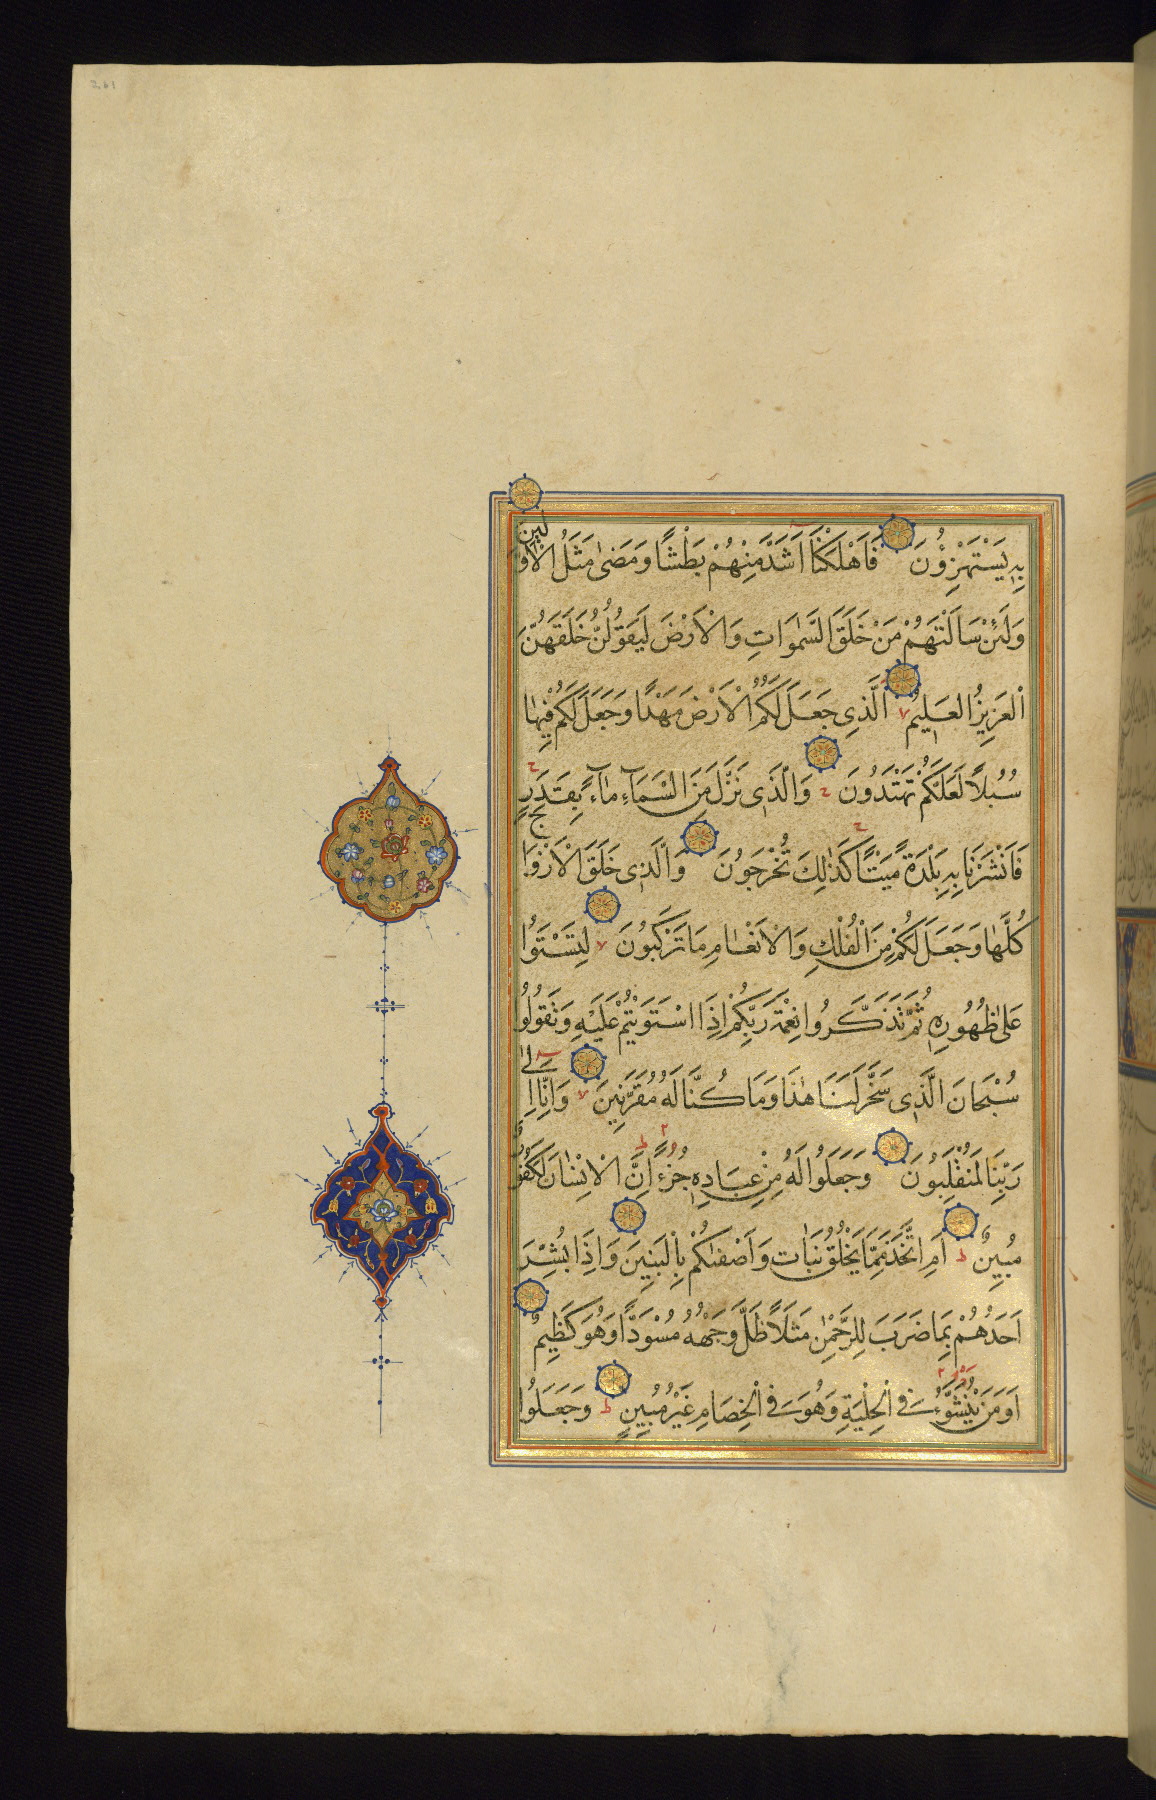 بِهِ يَسْتَهْزِؤُنَ فَاَهْلَكْنَا اَشَدَّ مِنْهُمْ بَطْشًا وَمَضٰى مَثَلُ الْاَوَّلِينَ
وَلَئِنْ سَاَلْتَهُمْ مَنْ خَلَقَ السَّمٰوَاتِ وَالْاَرْضَ لَيَقُولُنَّ خَلَقَهُنَّ
الْعَزِيزُ الْعَلِيمُ ۷ اَلَّذِى جَعَلَ لَكُمُ الْاَرْضَ مَهْدًا وَجَعَلَ لَكُمْ فِيهَا
سُبُلًا لَعَلَّكُمْ تَهْتَدُونَ ج وَالَّذِى نَزَّلَ مِنَ السَّمَآءِ مَآءً بِقَدَرٍ ج
فَاَنْشَرْنَا بِهِ بَلْدَةً مَيْتًا ج كَذٰلِكَ تُخْرَجُونَ وَالَّذِى خَلَقَ الْاَزْوَاجَ
كُلَّهَا وَجَعَلَ لَكُمْ مِنَ الْفُلْكِ وَالْاَنْعَامِ مَا تَرْكَبُونَ ۷ لِتَسْتَوُا
عَلٰى ظُهُورِهِ ثُمَّ تَذَكَّرُوا نِعْمَةَ رَبِّكُمْ اِذَا اسْتَوَيْتُمْ عَلَيْهِ وَتَقُولُوا
سُبْحَانَ الَّذِى سَخَّرَ لَنَا هٰذَا وَمَا كُنَّا لَهُ مُقْرَنِينَ ۷ وَاِنَّا اِلٰى
رَبِّنَا لَمُنْقَلِبُونَ وَجَعَلُوا لَهُ مِنْ عِبَادِهِ جُزْءًا ط اِنَّ الْاِنْسَانَ لَكَفُورٌ
مُبِينٌ ط اَمِ اتَّخَذَ مِمَّا يَخْلُقُ بَنَاتٍ وَاَصْفٰىكُمْ بِالْبَنِينَ وَاِذَا بُشِّرَ
اَحَدُهُمْ بِمَا ضَرَبَ لِلرَّحْمٰنِ مَثَلًا ظَلَّ وَجْهُهُ مُسْوَدًّا وَهُوَ كَظِيمٌ
اَوَمَنْ يُنَشَّؤُ فِى الْحِلْيَةِ وَهُوَ فِى الْخِصَامِ غَيْرُ مُبِينٍ ط وَجَعَلُوا